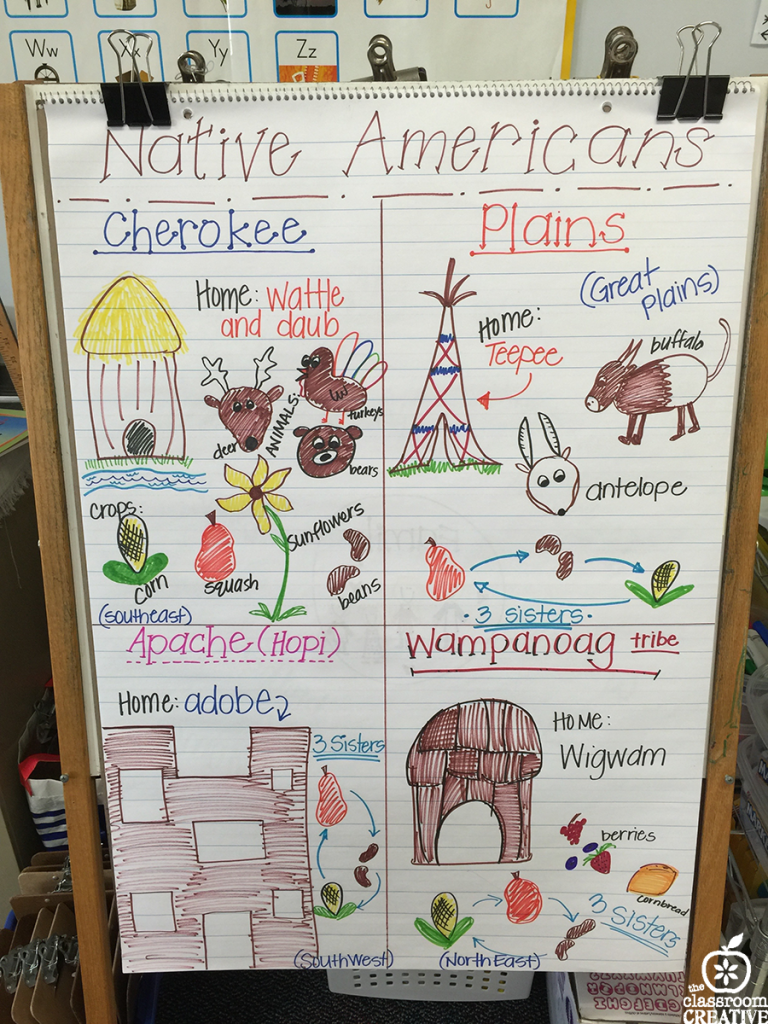 Ww
Xx
Yy
Zz
Native Americans
Cherokee
Home: Wattle
and daub
ANIMALS:
deer
turkeys
bears
crops:
corn
squash
sunflowers
beans
(southeast)
Plains
(Great
Plains)
Home:
Teepee
buffalo
antelope
3 sisters
Apache (Hopi)
Home: adobe
3 Sisters
(SouthWest)
Wampanoag tribe
Home:
Wigwam
berries
cornbread
3 Sisters
(NorthEast)
the
classroom
CREATIVE